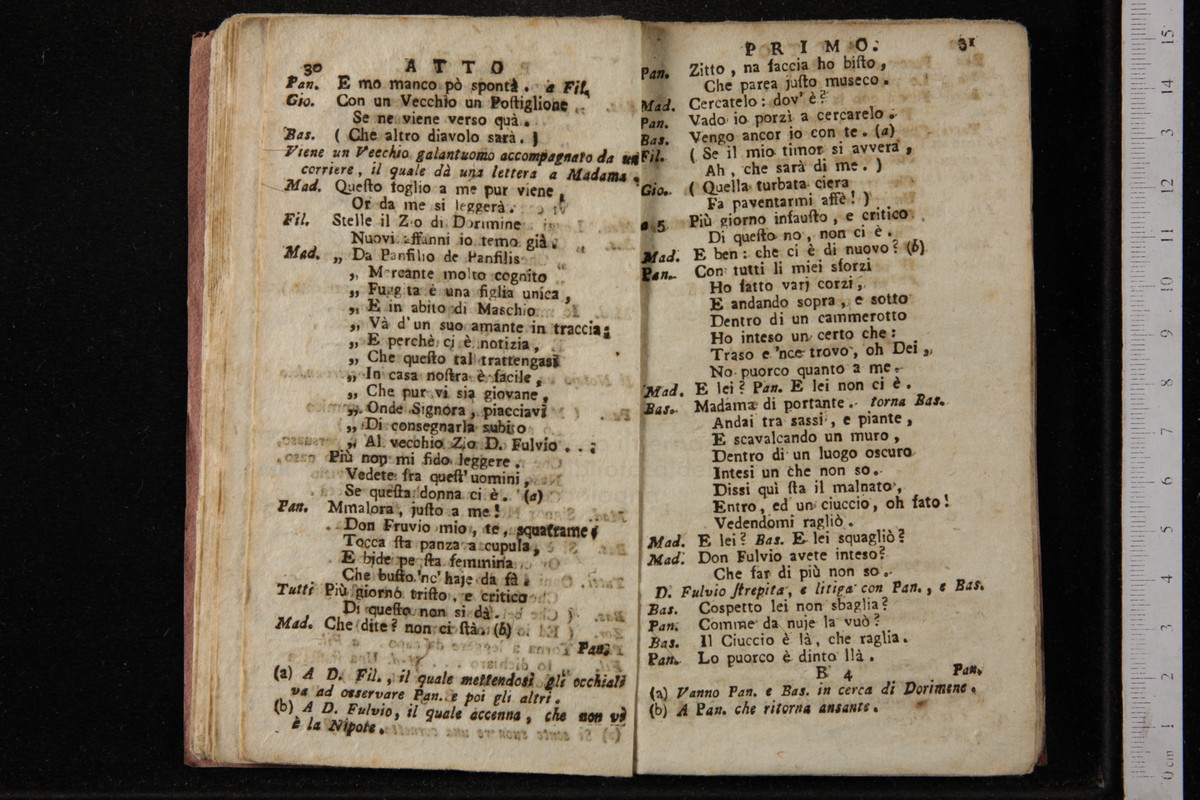 30 ATTO
Pan. E mo manco pò sponti. a Fil.
Gio. Con un Vecchio un Poſtiglione
Se ne viene verso quà.
Bas. ( Che altro diavolo sarà. )
Viene un Vecchio galantuomo accompagnato da un
corriere, il quale dà una lettera a Madama.
Mad. Queſto foglio a me pur viene,
Or da me si leggerà.
Fil. Stelle il Zio di Dorimene
Nuovi affanni io temo già.
Mad. „ Da Panfilio de Panfilis
„ Mercante molto cognito
„ Fuggita è una figlia unica,
„ E in abito di Maschio
„ Và d'un suo amante in traccia:
„ E perchè ci è notizia,
„ Che queſto tal trattengasi
„ In casa noſtra è facile,
„ Che pur vi sia giovane,
„ Onde Signora, piacciavi
„ Di consegnarla subito
„ Al vecchio Zio D. Fulvio . . ;
Più non mi fido leggere.
Vedete fra queſt' uomini,
Se queſta donna ci è. (a)
Pan. Mmalora, juſto a me!
Don Fruvio mio, te, squatrame
Tocca ſta panza a cupula,
E bide pe ſta femmina
Che buſto 'nc' haje da fà.
Tutti Più giorno triſto, e critico
Di queſto non si dà.
Mad. Che dite? non ci ſtà. (b)
Pan.
(a) A D. Fil., il quale mettendosi gli occhiali
va ad osservare Pan. e poi gli altri.
(b) A D. Fulvio, il quale accenna, che non vi
è la Nipote.
PRIMO. 31
Pan. Zitto, na faccia ho biſto,
Che parea juſto museco.
Mad. Cercatelo: dov' è?
Pan. Vado io porzì a cercarelo.
Bas. Vengo ancor io con te. (a)
Fil. ( Se il mio timor si avvera,
Ah, che sarà di me. )
Gio. ( Quella turbata ciera
Fa paventarmi affè! )
a 5 Più giorno infauſto, e critico
Di queſto no, non ci è.
Mad. E ben: che ci è di nuovo? (b)
Pan. Con tutti li miei sforzi
Ho fatto varj corzi,
E andando sopra, e sotto
Dentro di un cammerotto
Ho inteso un certo che:
Traso e 'nce trovo, oh Dei,
No puorco quanto a me.
Mad. E lei? Pan. E lei non ci è.
Bas. Madama di portante. torna Bas.
Andai tra sassi, e piante,
E scavalcando un muro,
Dentro di un luogo oscuro
Intesi un che non so.
Dissi quì ſta il malnato,
Entro, ed un ciuccio, oh fato!
Vedendomi ragliò.
Mad. E lei? Bas. E lei squagliò?
Mad. Don Fulvio avete inteso?
Che far di più non so.
D. Fulvio ſtrepita, e litiga con Pan., e Bas.
Bas. Cospetto lei non sbaglia?
Pan. Comme da nuje la vuò?
Bas. Il Ciuccio è là, che raglia.
Pan. Lo puorco è dinto llà.
B 4 Pan.
(a) Vanno Pan. e Bas. in cerca di Dorimene.
(b) A Pan. che ritorna ansante.